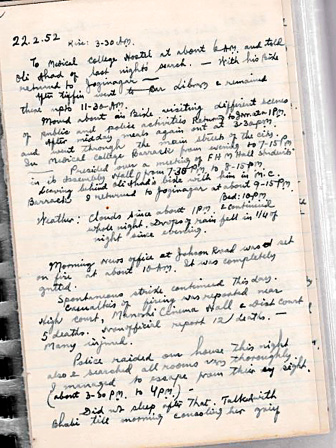 22.2.52 Rise: 3-30 AM.
To Medical College Hostel at about 6 A.M. and told
Oli Ahad of last night's search. — With his bike
returned to Joginagar —
After tiffin went to Bar Library & remained
there upto 11-30 A.M.
Moved about on Bike visiting different scenes
of public and police activities
After midday meals again out at 3-30 P.M.
and went through the main streets of the city.
In Medical College Barrack from evening to 7-15 P.M.
Presided over a meeting of F.H.M. Hall students
in its Assembly Hall from 7.30 P.M. to 8-15 P.M.
Leaving behind Oli Ahad's bike with him in M.C.
Barracks I returned to Joginagar at about 9-15 P.M.
Bed: 10 P.M.
Weather: Clouds since about 1 P.M. & continued
whole night. Drops of rain fell in 1/4 of
night since evening.
Morning News office at Johnson Road was set
on fire at about 10 A.M. It was completely
gutted.
Spontaneous strike continued this day.
Casualties of firing was reported near
High Court, Manoshi Cinema Hall & Dist Court
5 deaths. Unofficial report 12 deaths. —
Many injured.
Police raided our house this night
also & searched all rooms very thoroughly.
I managed to escape from their sight.
(about 3-30 P.M. to 4 P.M.) —
Did not sleep after that. Talked with
Bhabi till morning consoling her